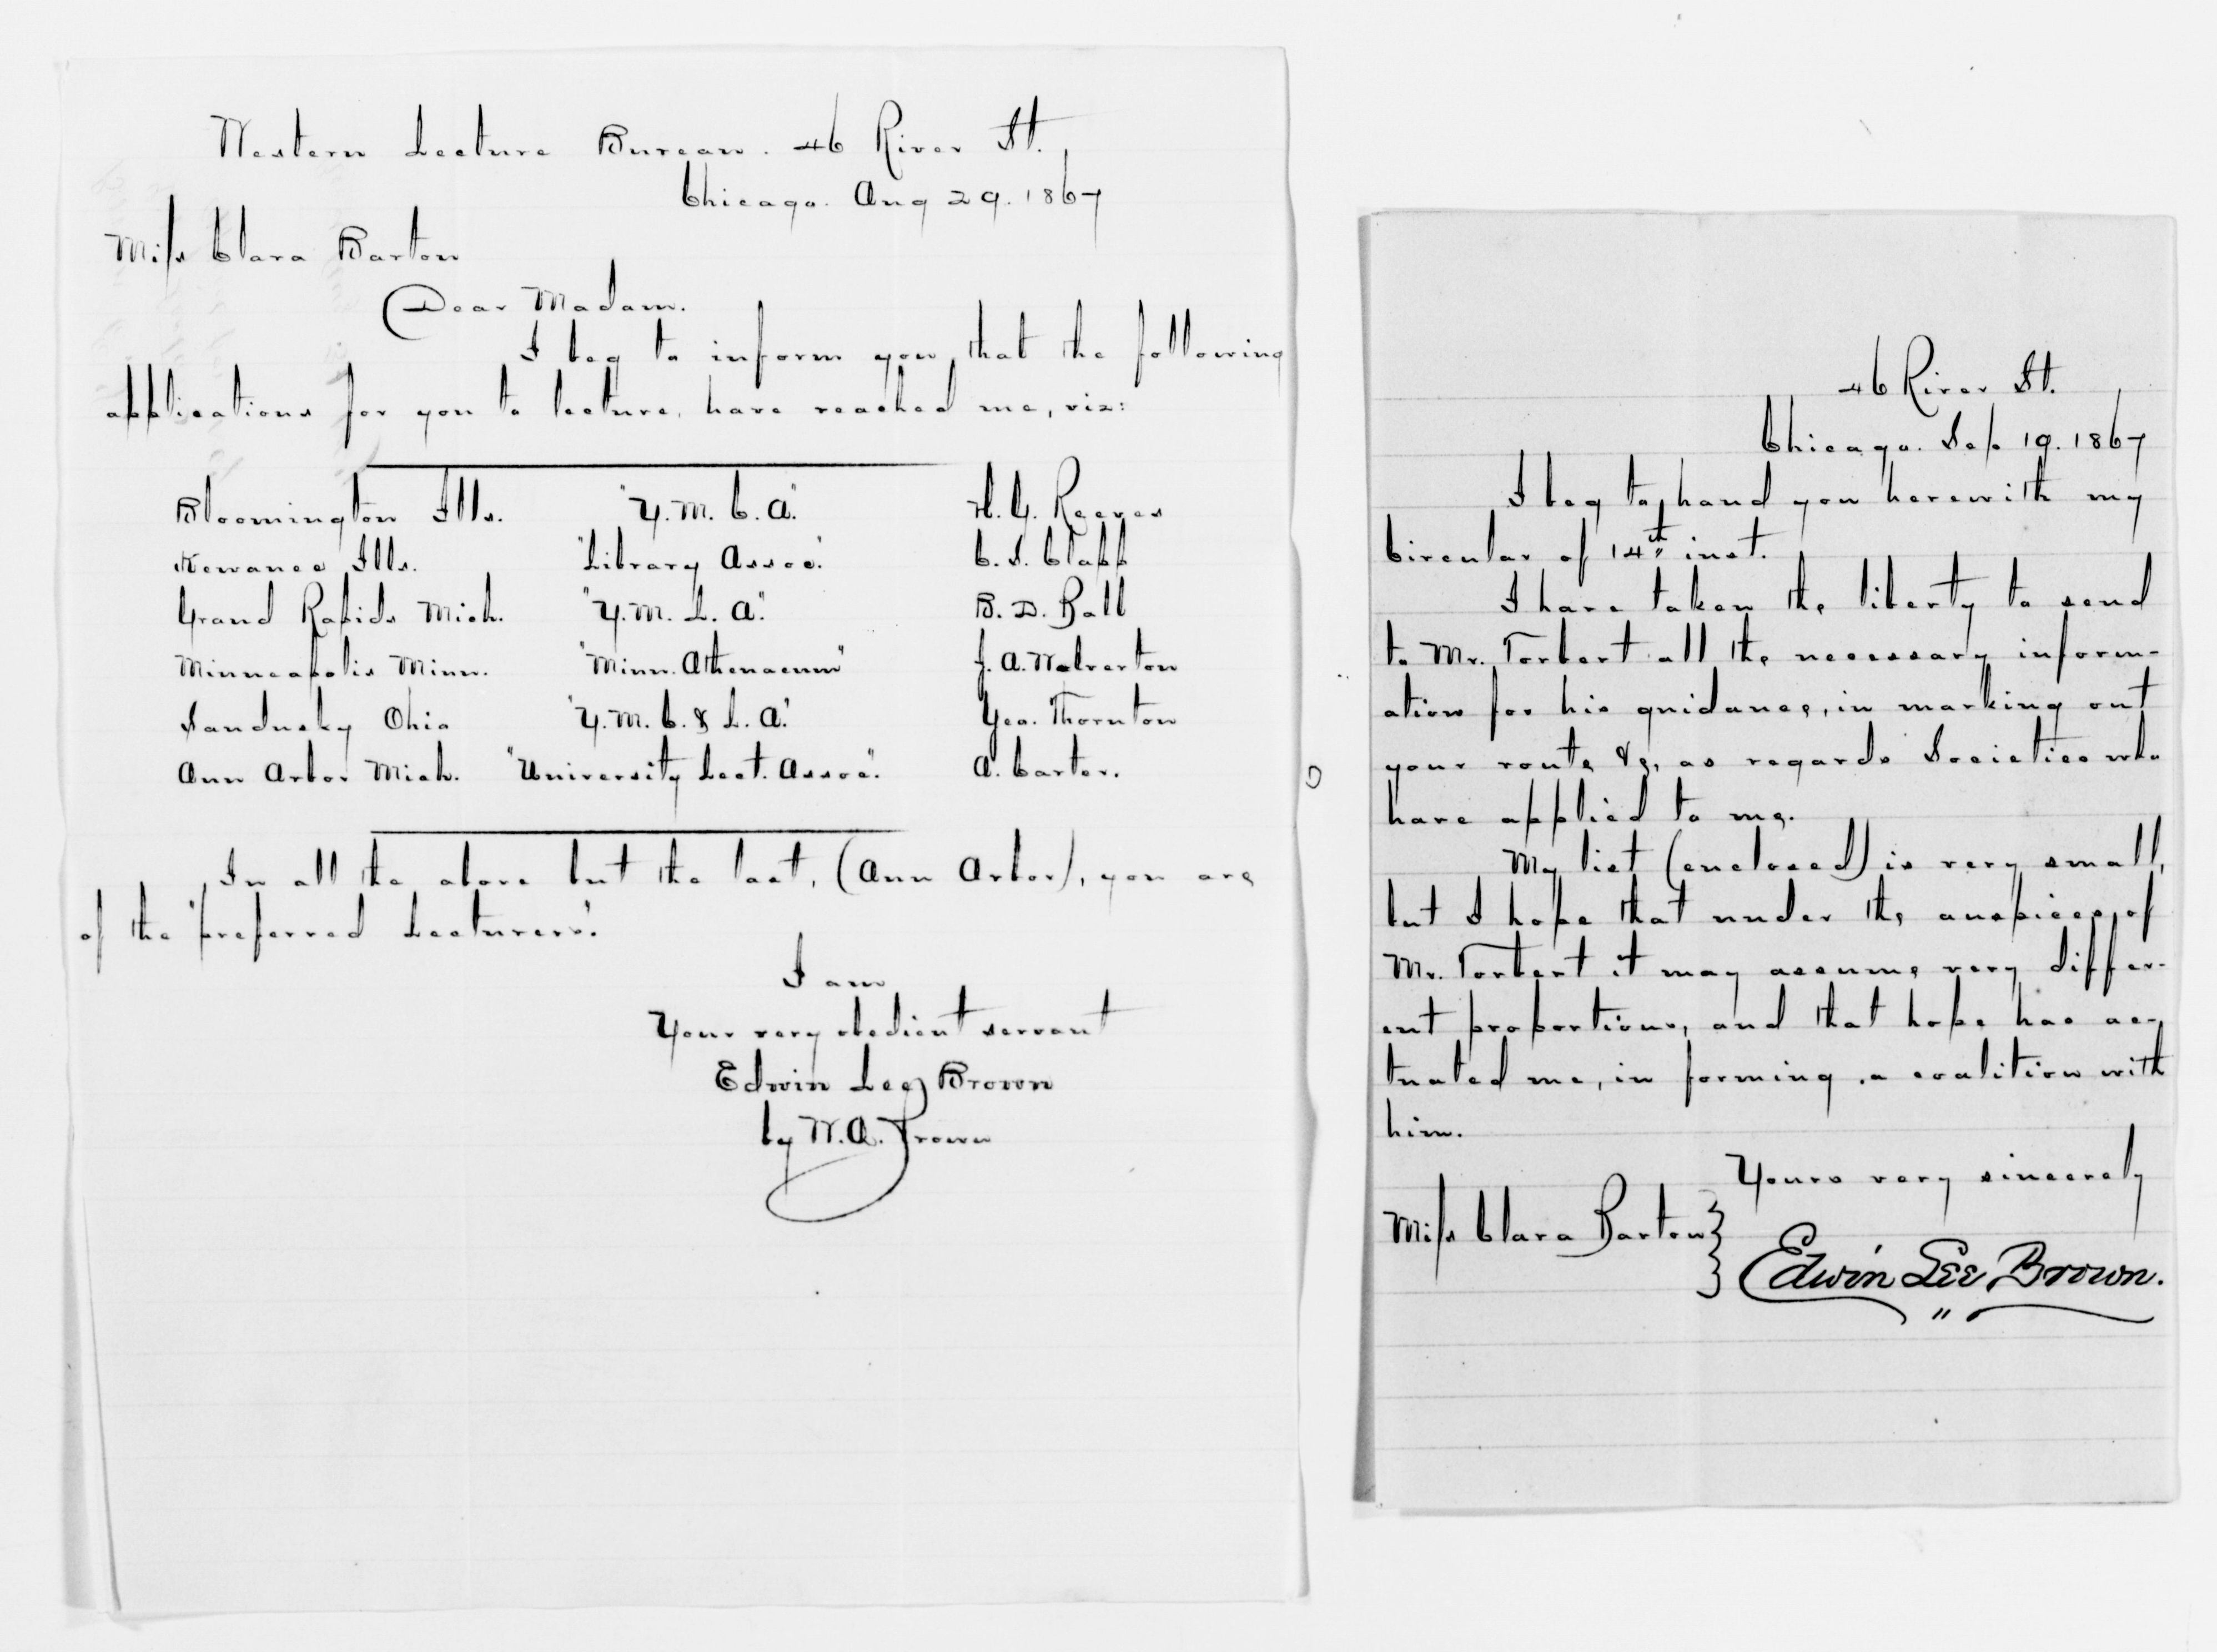 Western Lecture Bureau. 46 River St.
Chicago. Aug 29. 1867
Miss Clara Barton
Dear Madam.
I beg to inform you, that the following
applications for you to lecture, have reached me, viz:
Bloomington Ills. "Y. M. C. A." H. G. Reeves
Kewanee Ills. "Library Assoc." C. S. Clapp
Grand Rapids Mich. "Y. M. L. A." B. D. Ball
Minneapolis Minn. "Minn. Athenaeum" J. A. Wolverton
Sandusky Ohio "Y. M. C. & L. A." Geo. Thornton
Ann Arbor Mich. "University Lect. Assoc". A. Carter.
In all the above but the last, (Ann Arbor), you are
of the "preferred Lecturers".
I am
Your very obedient servant
Edwin Lee Brown
by W. A. Brown
46 River St.
Chicago. Sep. 19. 1867
I beg to hand you herewith my
Circular of 14th inst.
I have taken the liberty to send
to Mr. Torbert all the necessary inform-
ation for his guidance, in marking out
your route &c, as regards Societies who
have applied to me.
My list (enclosed) is very small,
but I hope that under the auspices of
Mr. Torbert it may assume very differ-
ent proportions, and that hope has ac-
tuated me, in forming a coalition with
him.
Yours very sincerely
Miss Clara Barton }
Edwin Lee Brown.